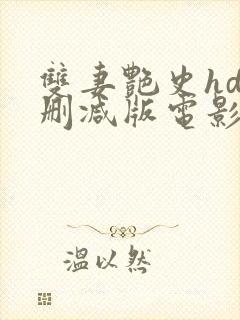 雙妻艷史hd
刪減版電影
溫以然